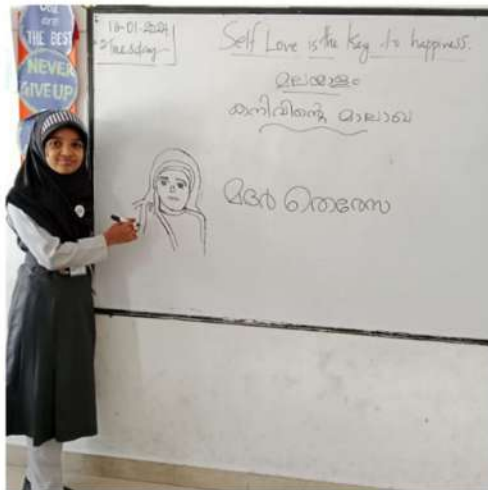 are
THE BEST
NEVER
GIVE UP
Tuesday
Self Love is the key to happiness.
മലയാളം
കനിവിന്റെ മാലാഖ
മദർ തെരേസ